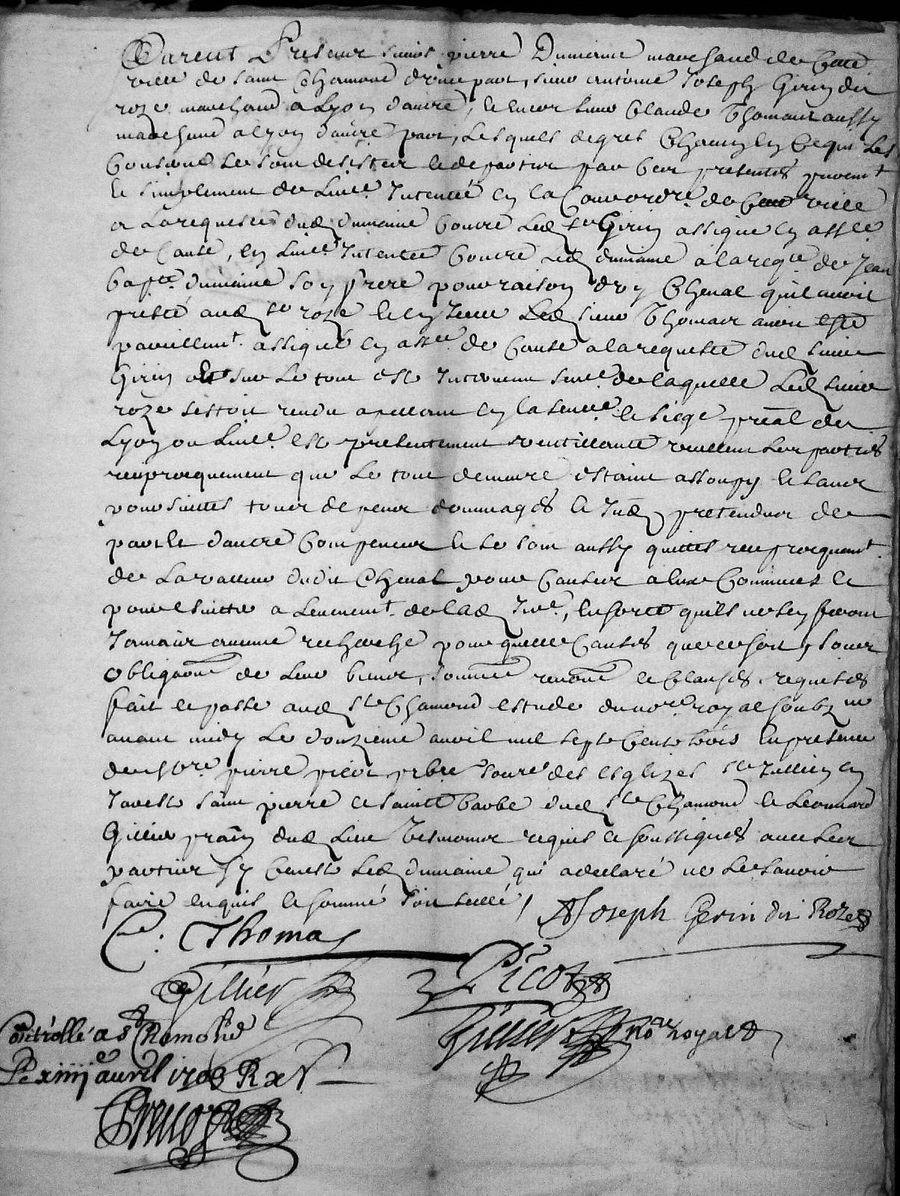 Furent Presens sieur pierre Dumaine marchand de Cette
ville de saint Chamond d'une part, sieur antoine Joseph Girin du
roze marchand a Lyon d'autre, et encor sieur Claude Thomas aussy
marchand a lyon d'autre part, Lesquels de gres
se sont desister et departir par Ces presentes purem.t
et simplement de L'ince. Intentée en la de Cette ville
a La requeste dud dumaine Contre Led s.r Girin assigné en ass.ce
de Cause, en L'ince. Intentée Contre Led dumaine a la req.te de Jean
bap.te dumaine son frere pour raison d'un Cheval qu'il avoit
presté aud s.r roze et en Icelle Led sieur Thomas auroit esté
pareillem.t assigné en ass.ce de Cause a la requeste dud sieur
Girin et sur Le tout est Intervenu sence. de laquelle Led sieur
roze s'estoit rendu apellant en la senee. et siege preal de
Lyon ou L'ince. est presentement veullent Les parties
reciproquement que Le tout demeure estaint assoupy et
pour suittes tous depens dommages et Intd pretendus de
part et d'autre Compenses et se sont aussy quittes reciproquem.t
de La valleur dudit Cheval pour Causes a eux Connues et
pour suitte a L'evenem.t de lad Ince., En sorte qu'ils ne s'en feront
Jamais aucune recherche pour quelle Causes que ce soit, sous
obligaons de Leur biens, soumis. renonc. et Clauses requises
fait et passé aud st Chamond estude du no.re royal soubz.ne
avant midy Le douzieme avril mil sept Cents trois En presence
de pierre picot prbre des Esglizes st Jullien en
Jarest saint pierre et sainte barbe dud st Chamond et Leonnard
Gillier praen dud Lieu Tesmoins requis et soussignés avec Les
parties sy Ce n'est Led dumaine qui a declaré ne Le savoir
faire enquis et sommé
Joseph Gerin du Roze
C. Thomas
Gillier Picot
Controllé a st Chamond Gillier No.re royal
Le xiiij avril 1703 R x s